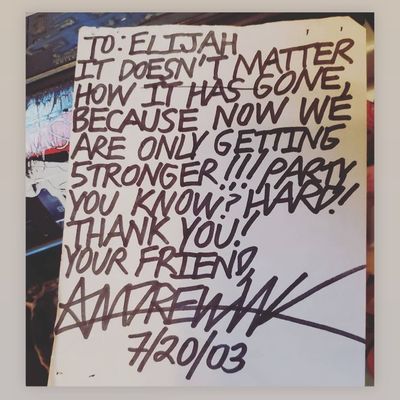 TO: ELIJAH
IT DOESN'T MATTER
HOW IT HAS GONE,
BECAUSE NOW WE
ARE ONLY GETTING
STRONGER!!! PARTY
YOU KNOW? HARD!!
THANK YOU!
YOUR FRIEND,
ANDREW W.K.
7/20/03